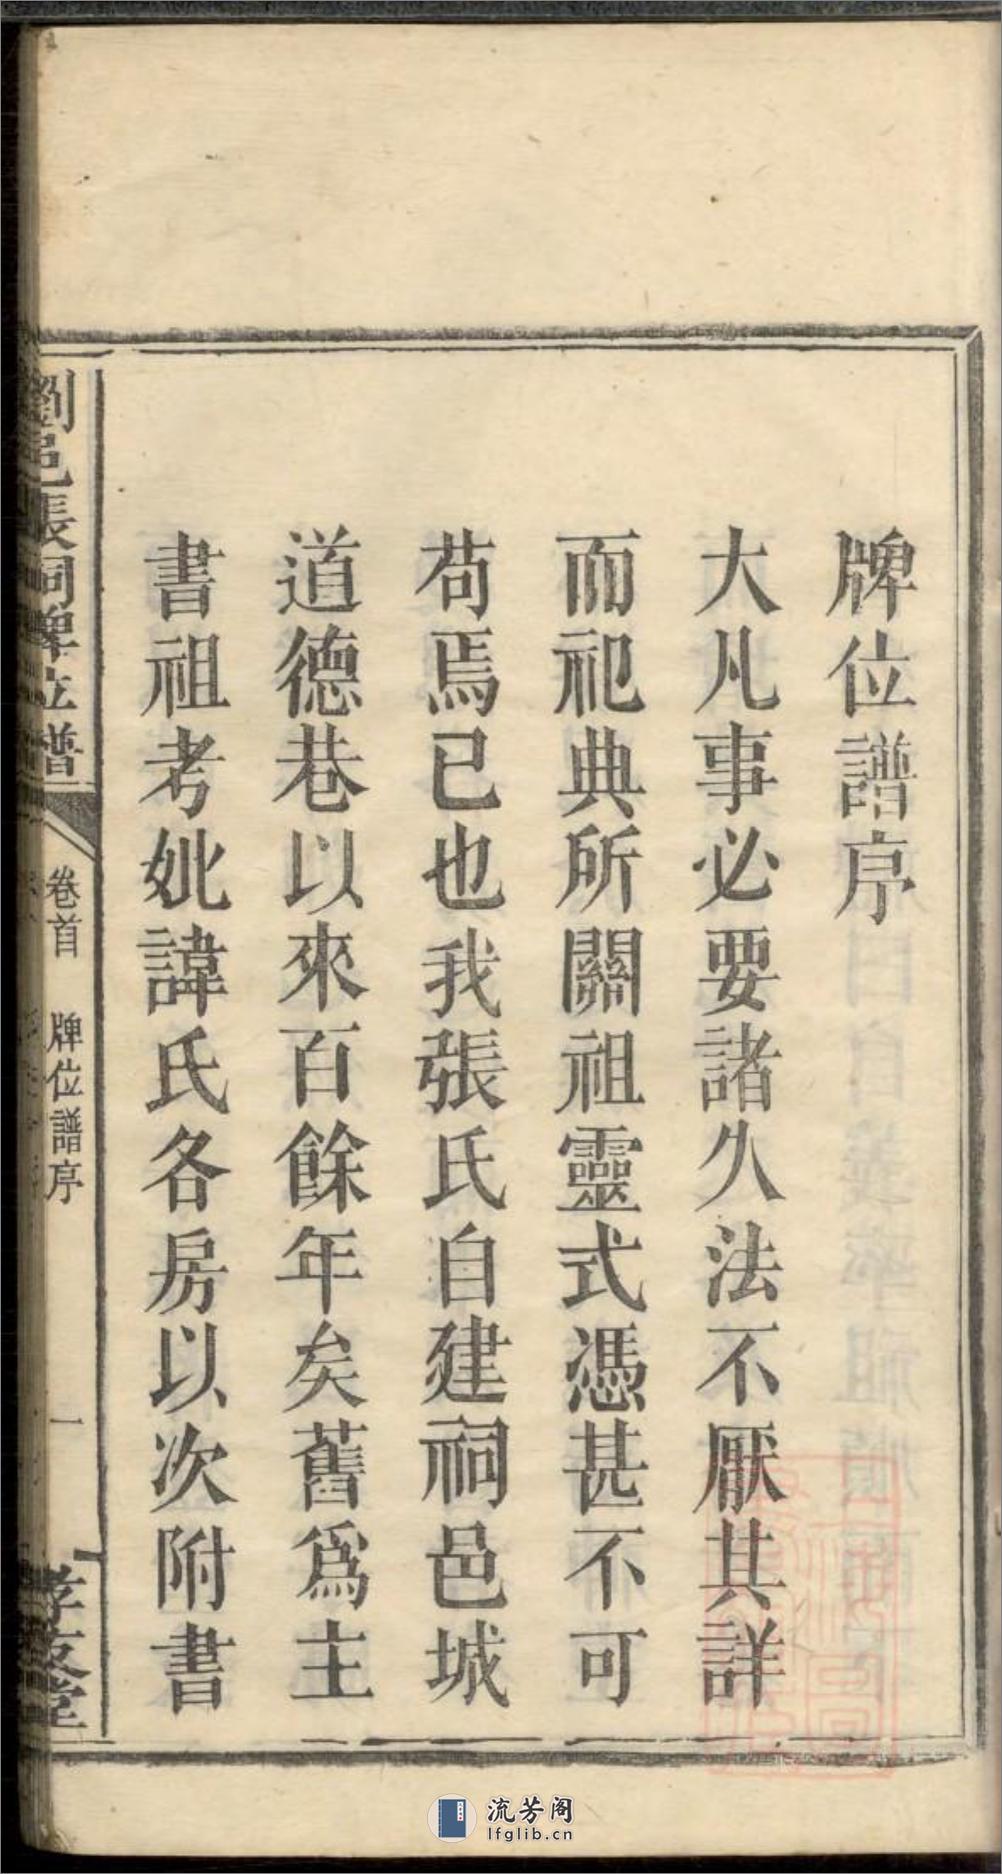 牌位譜序
大凡事必要諸久法不厭其詳
而祀典所關祖靈式憑甚不可
苟焉已也我張氏自建祠邑城
道德巷以來百餘年矣舊爲主
書祖考妣諱氏各房以次附書
劉邑張祠牌位譜
卷首 牌位譜序
一
孝友堂
流芳阁
lfglib.cn